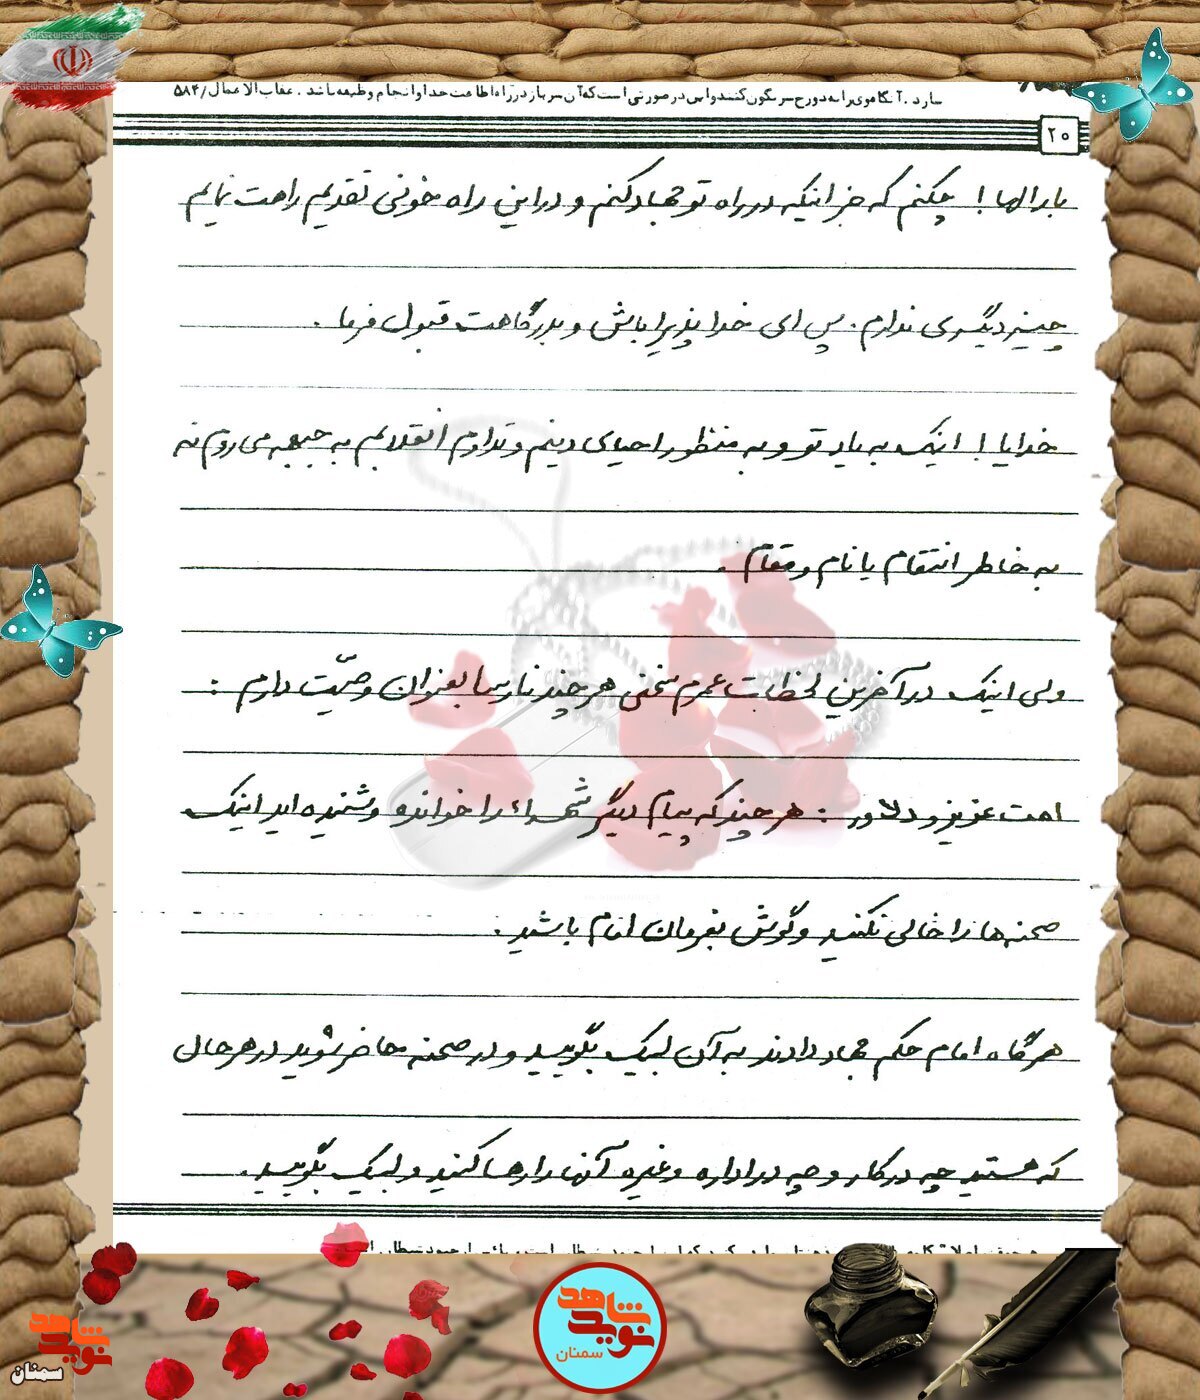 سازد. آنگاه وی را به دوزخ سرنگون کنند و این در صورتی است که آن سرباز در راه اطاعت خدا و انجام وظیفه باشد. عقاب الاعمال/۵۸۴
۲۵
بارالها! چکنم که جز اینکه در راه تو جهاد کنم و در این راه خونی تقدیم راهت نمایم
چیز دیگری ندارم. پس ای خدا پذیرا باش و بدرگاهت قبول فرما.
خدایا! اینک به یاد تو و به منظور احیای دینم و تداوم انقلابم به جبهه می روم نه
به خاطر انتقام یا نام و مقام.
ولی اینک در آخرین لحظات عمرم سخنی هر چند نارسا بعنوان وصیّت دارم:
امت عزیز و دلاور: هر چند که پیام دیگر شهداء را خوانده و شنیده اید اینک
صحنه ها را خالی نکنید و گوش بفرمان امام باشید.
هر گاه امام حکم جهاد دادند به آن لبیک بگویید و در صحنه حاضر شوید در هر حال
که هستید چه در کار و چه در اداره و غیره آنها را رها کنید و لبیک بگویید.
نوید شاهد
سمنان
نوید شاهد
سمنان